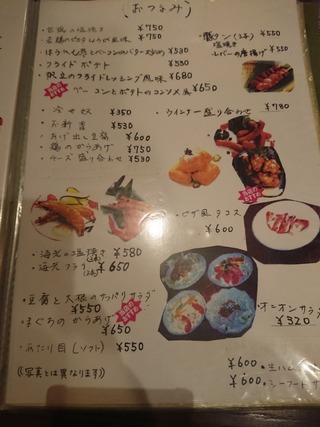 (おつまみ)
塩焼き ¥750
風味 ¥750
ほうれん草とベーコンのバター炒め ¥580
フライド ポテト ¥550
帆立のフライドレッシング風味 ¥680
ベーコンとポテトのコンソメ煮 ¥650
豚タン(2本) 塩焼き ¥550
レバーの唐揚げ ¥550
冷や奴 ¥350
お新香 ¥530
あげ出し豆腐 ¥600
鶏のからあげ ¥750
チーズ盛り合わせ ¥530
ウインナー盛り合わせ ¥780
ピザ風タコス
¥600
海老の塩焼き(2本) ¥580
海老フライ(2本) ¥650
豆腐と大根のサッパリサラダ
¥550
まぐろのからあげ
¥650
あたり目(ソフト) ¥550
オニオンサラダ
¥520
((写真とは異なります))
¥600 生ハム
¥600 シーフードサ